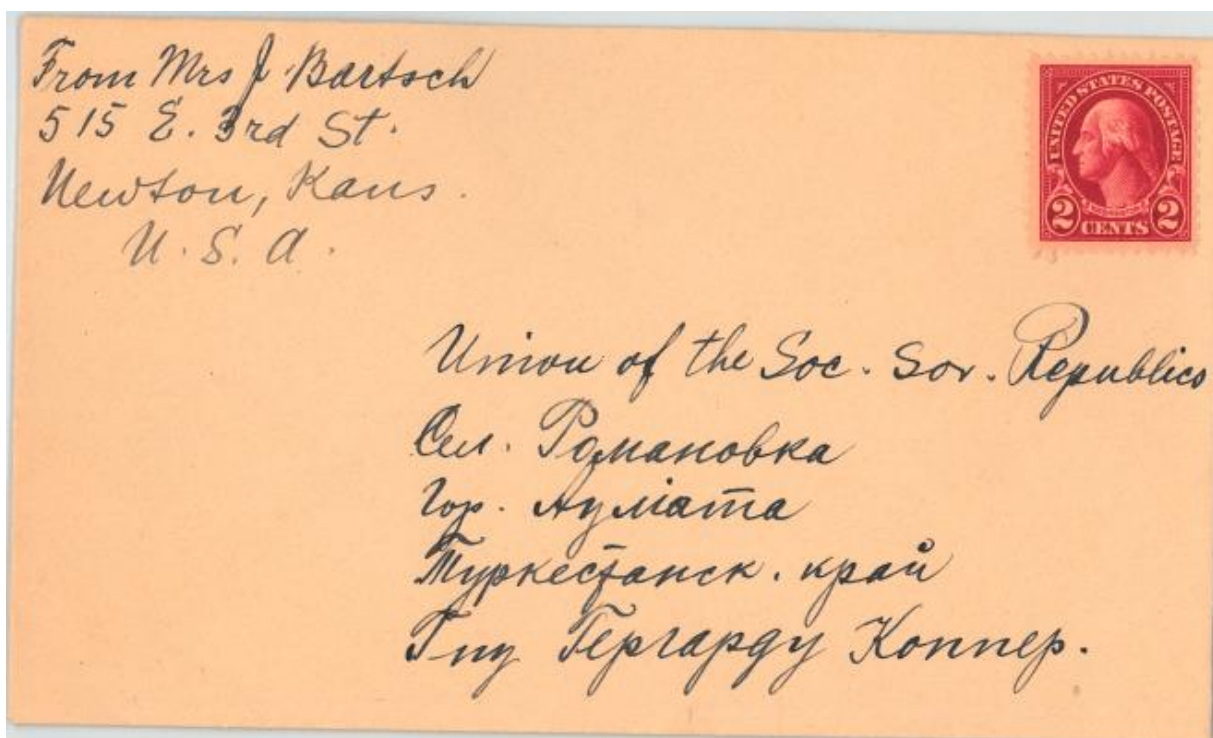 From Mrs J. Bartsch
515 E. 3rd St.
Newton, Kans.
U. S. A.
UNITED STATES POSTAGE
WASHINGTON
2 CENTS 2
Union of the Soc. Sov. Republics
Сел. Романовка
Гор. Аулиата
Туркестанск. край
Гну Герхарду Коппер.